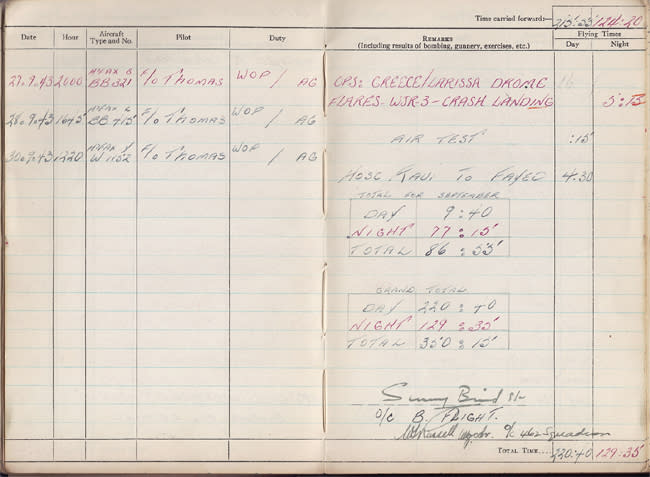 Time carried forward:— 215:55 124:20
Date Hour Aircraft Type and No. Pilot Duty REMARKS (Including results of bombing, gunnery, exercises, etc.) Flying Times
Day Night
27.9.43 2000 HYAX G BB321 F/O THOMAS WOP / AG OPS: GREECE/LARISSA DROME
FLARES - WJR-3 - CRASH LANDING 5:15
28.9.43 1645 HYAX BB415 F/O THOMAS WOP / AG AIR TEST :15
30.9.43 1220 HYAX W1152 F/O THOMAS WOP / AG HOSC RAUI TO FAYED 4.30
TOTAL FOR SEPTEMBER
DAY 9:40
NIGHT 77:15
TOTAL 86:55
GRAND TOTAL
DAY 220:40
NIGHT 129:35
TOTAL 350:15
O/C B. FLIGHT.
O/C 462 Squadron
TOTAL TIME.... 220:40 129:35